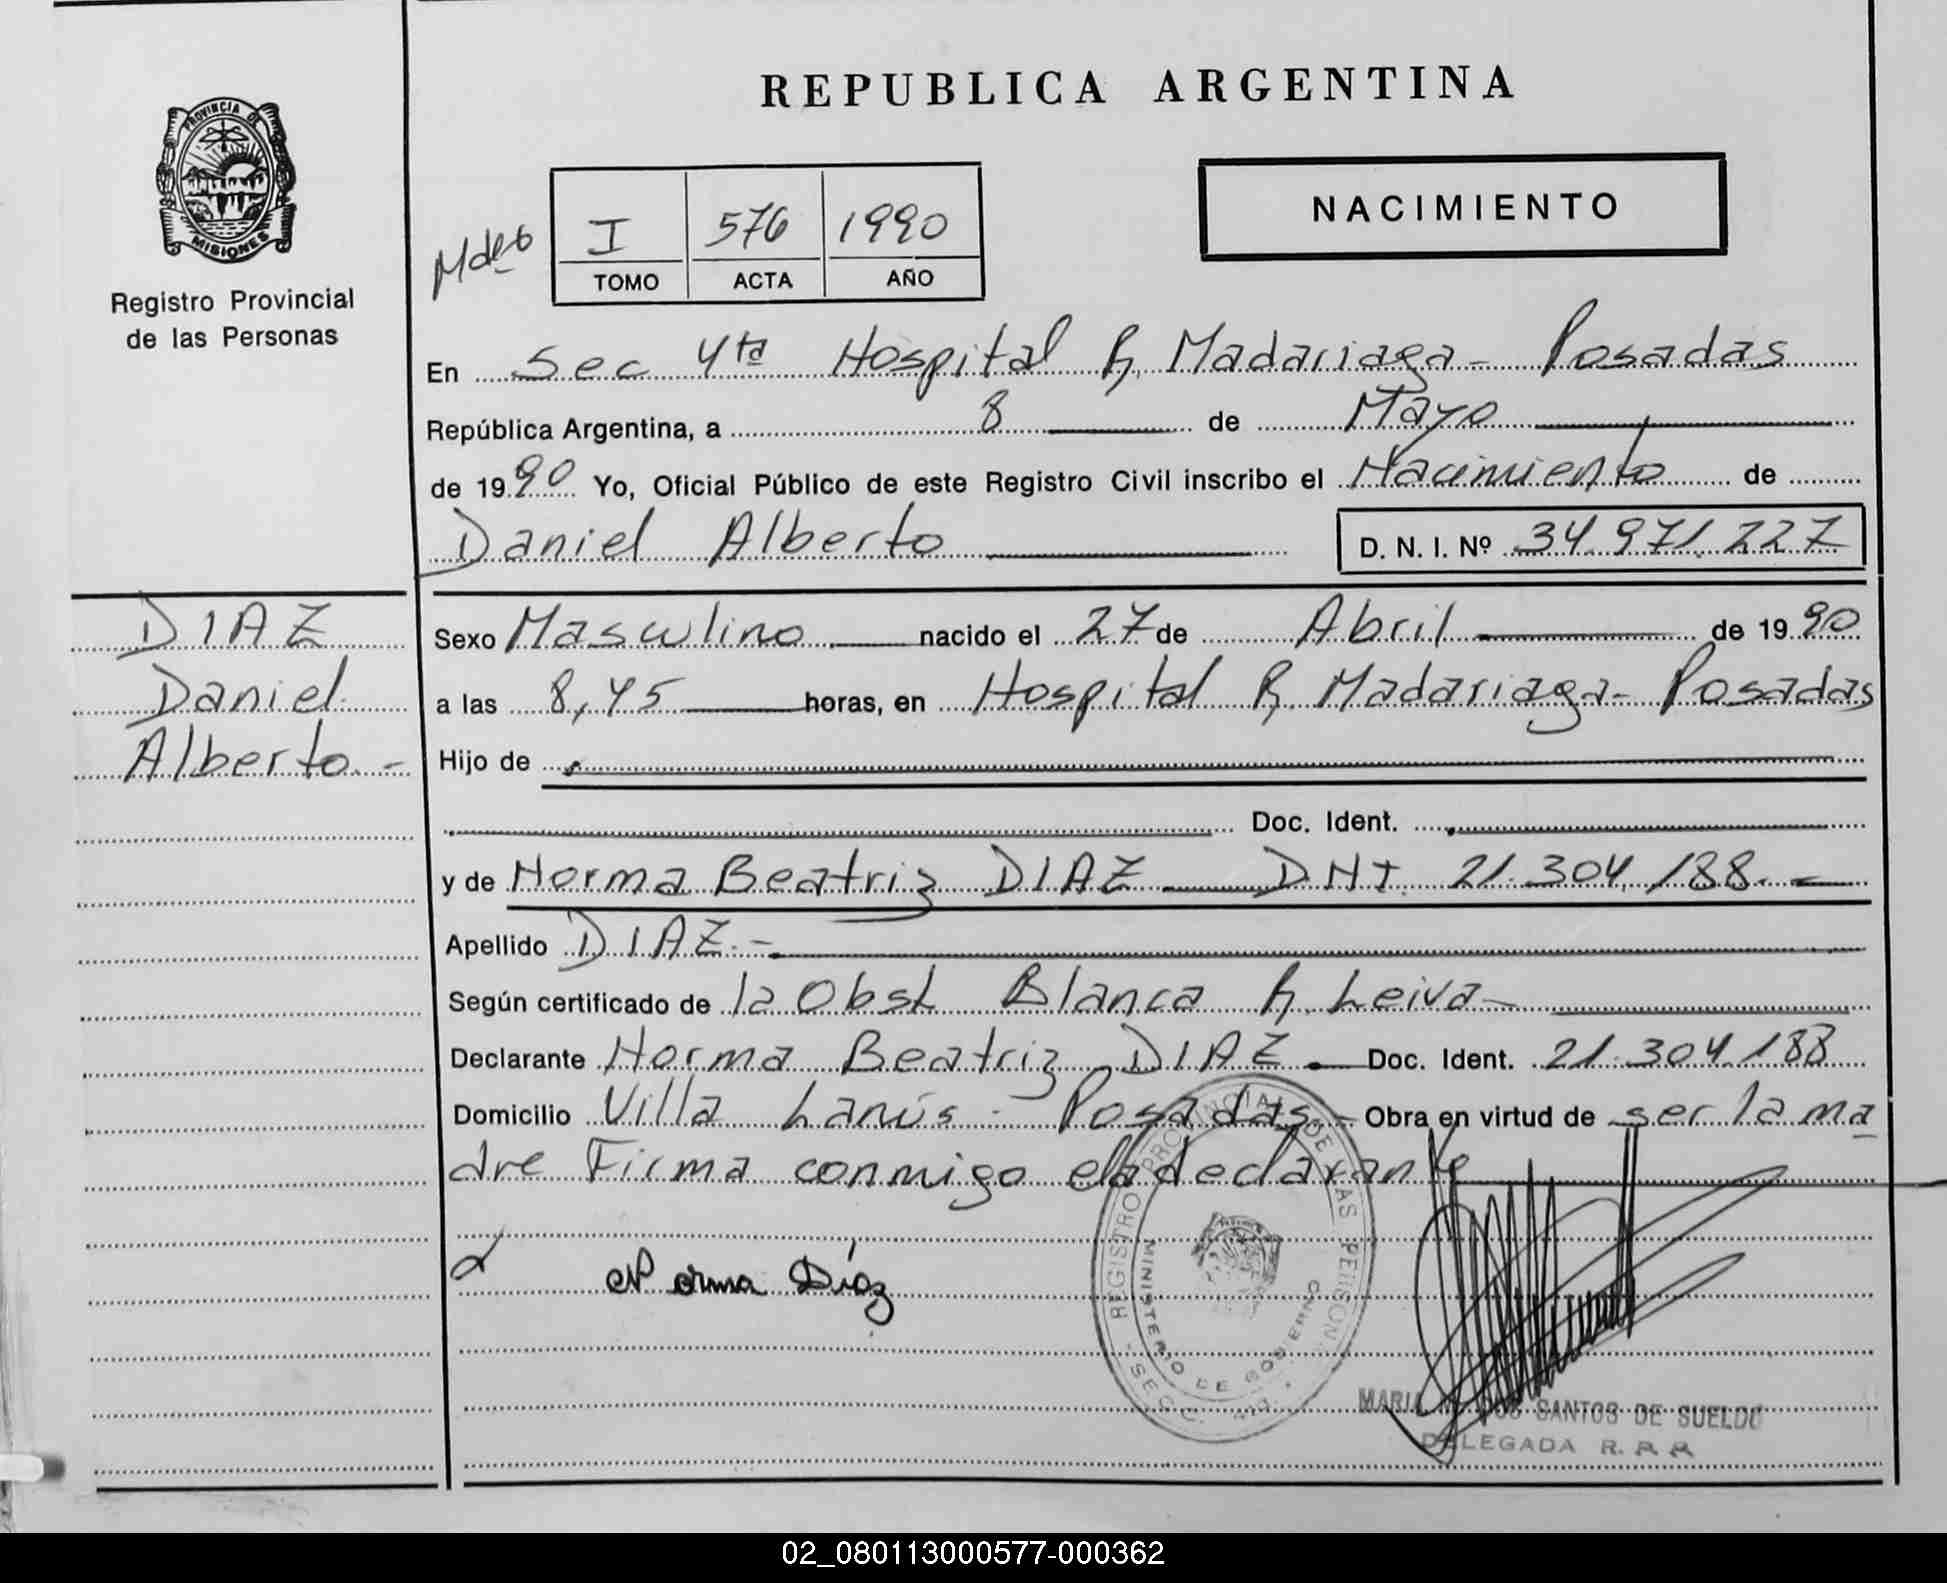 REPUBLICA ARGENTINA
PROVINCIA DE
MISIONES
Registro Provincial
de las Personas
I 576 1990
TOMO ACTA AÑO
NACIMIENTO
En Sec 4ta Hospital R. Madariaga - Posadas
República Argentina, a 8 de Mayo
de 1990 Yo, Oficial Público de este Registro Civil inscribo el Nacimiento de
Daniel Alberto D. N. I. Nº 34.971.227
DIAZ
Daniel
Alberto.-
Sexo Masculino nacido el 27 de Abril de 1990
a las 8,45 horas, en Hospital R. Madariaga - Posadas
Hijo de
Doc. Ident.
y de Norma Beatriz DIAZ DNI. 21.304.188.-
Apellido DIAZ.-
Según certificado de la Obst Blanca R. Leiva-
Declarante Norma Beatriz DIAZ. Doc. Ident. 21.304.188
Domicilio Villa Lanús - Posadas - Obra en virtud de ser la ma
dre Firma conmigo la declarante
Norma Díaz
REGISTRO PROVINCIAL DE LAS PERSONAS
MINISTERIO DE GOBIERNO
- SECC. 4ta. -
MARIA DOS SANTOS DE SUELDO
DELEGADA R. P. P.
02_080113000577-000362